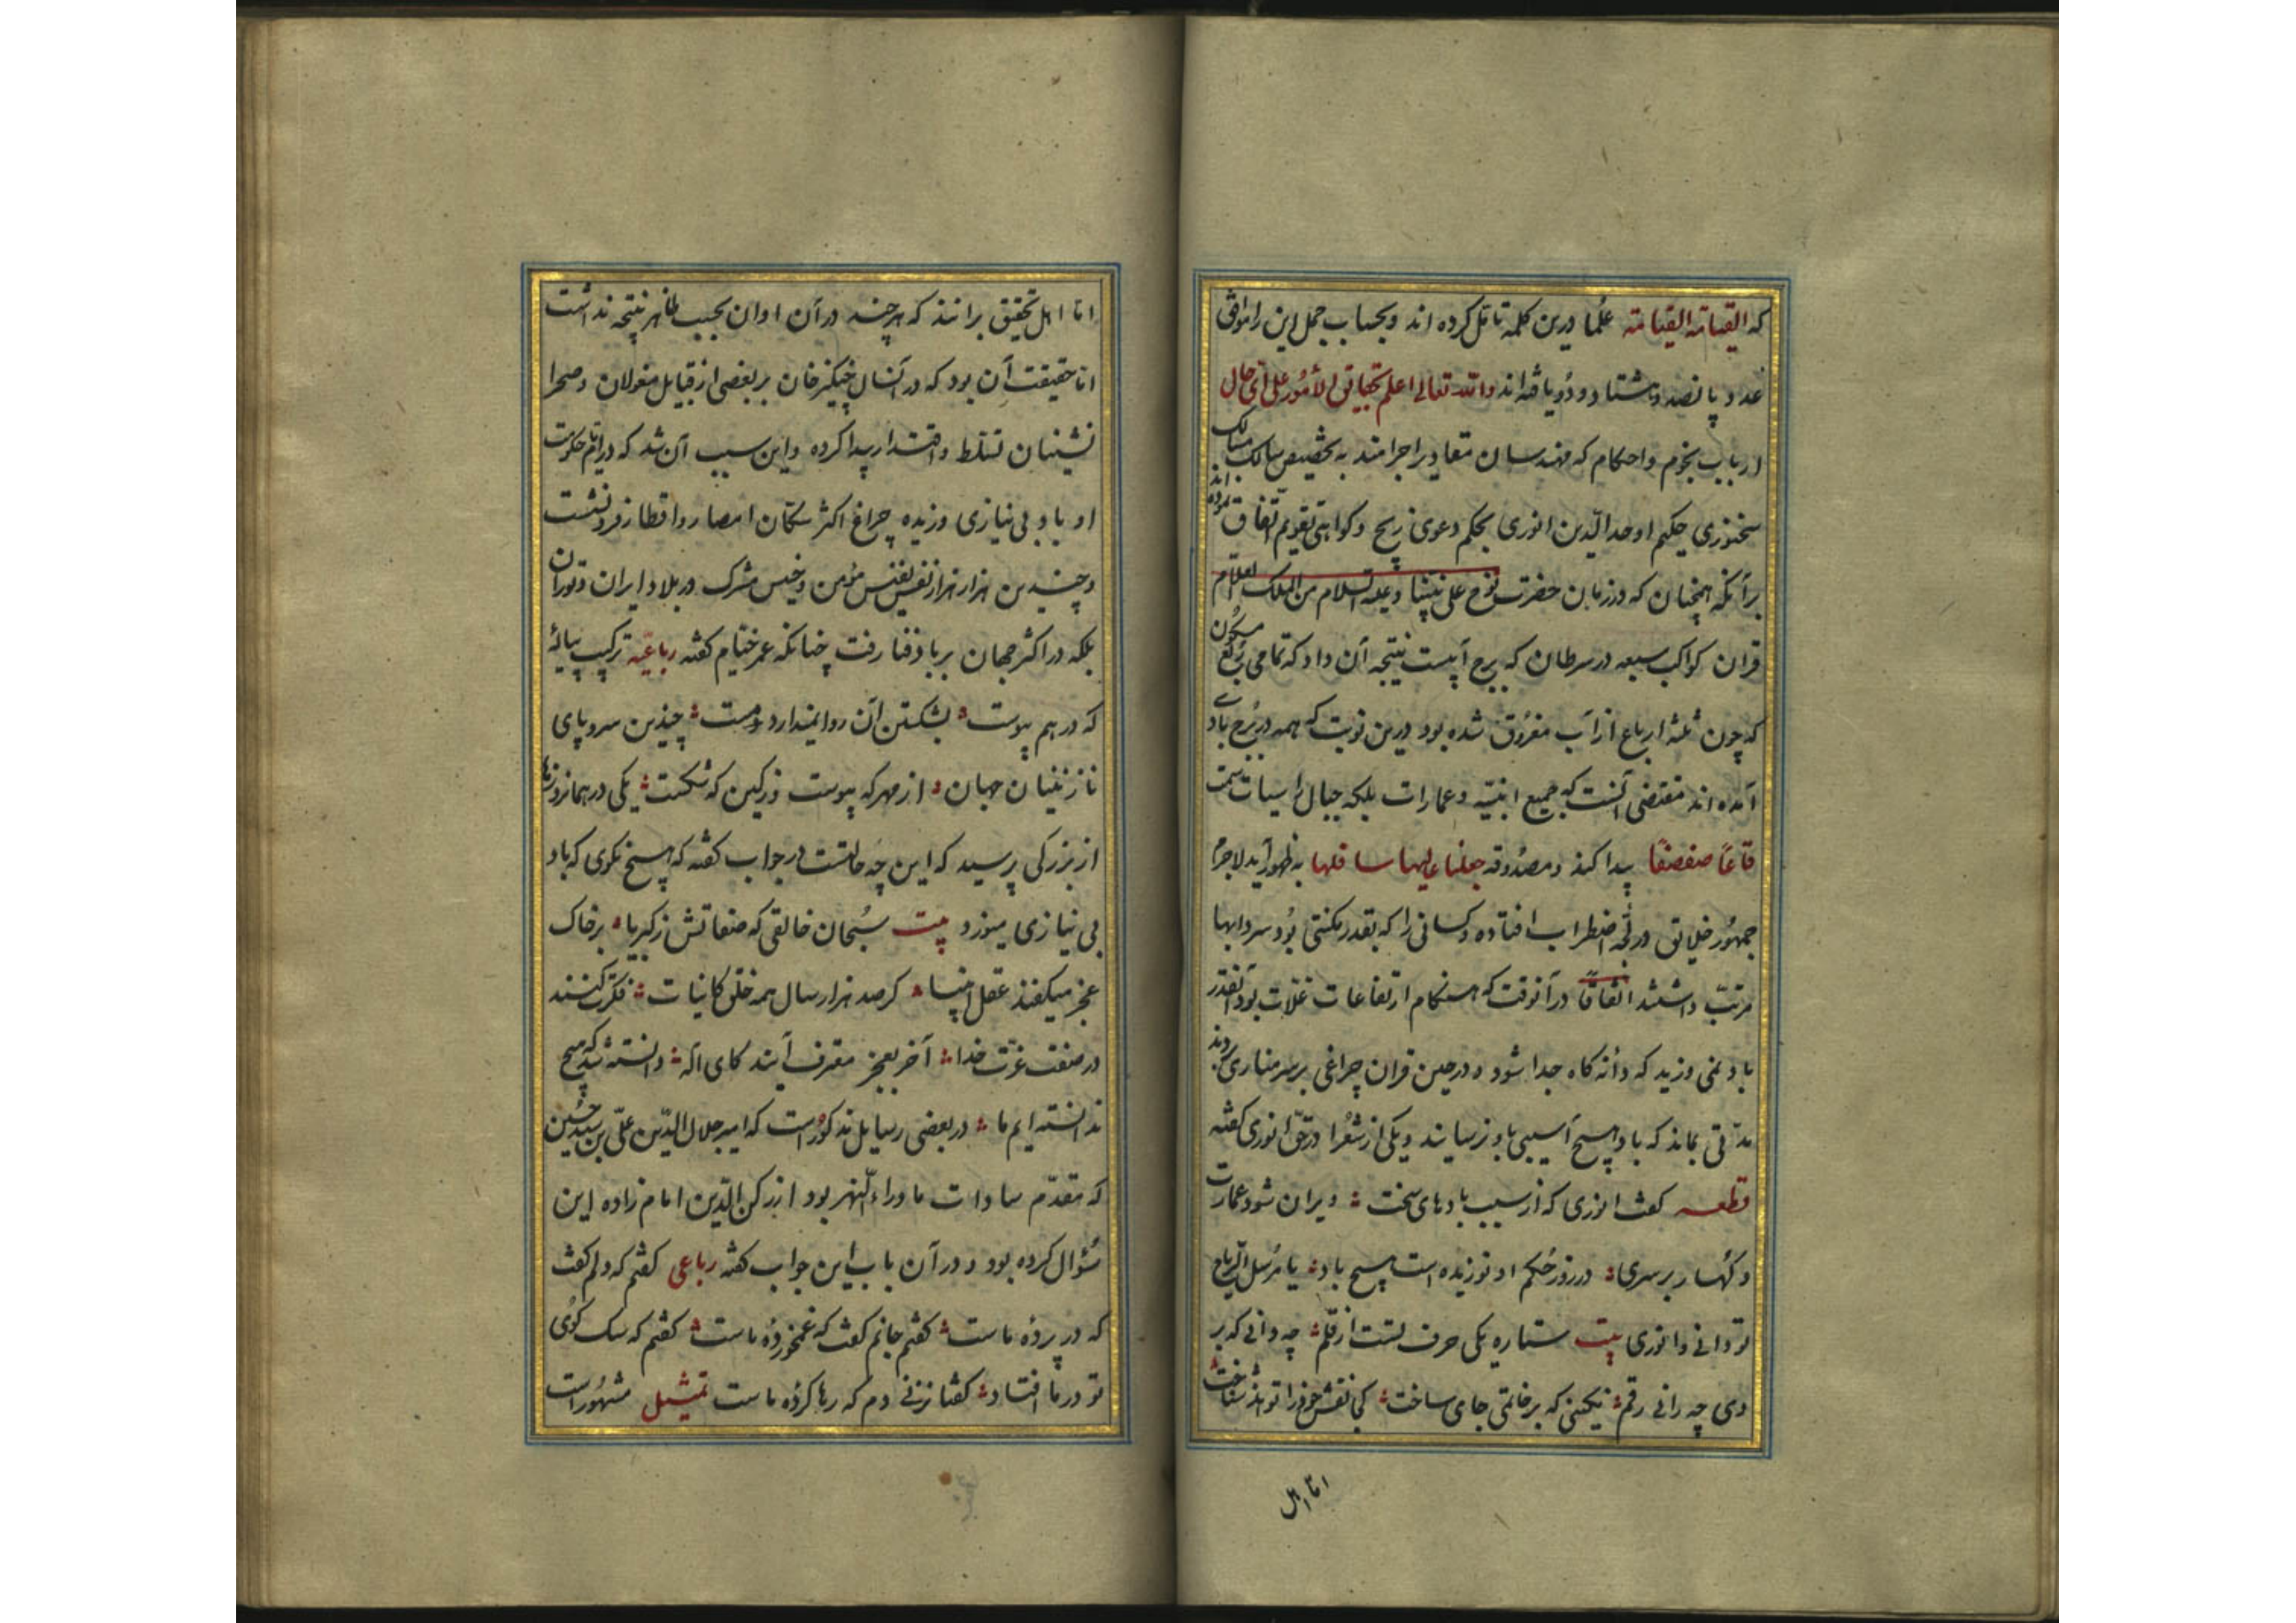 که القیامة القیامة علما درین کلمه تامل کرده اند و بحساب جمل این را موافق
عدد پانصد و هشتاد و دو یافته اند والله تعالی اعلم بحقایق الأمور علی ای حال
ارباب نجوم و احکام که مهندسان مقادیر اجرامند به تخصیص سالک مسالک
سخنوری حکیم اوحد الدین انوری بحکم دعوی زیج و کواهی تقویم اتفاق نموده اند
برآنکه همچنان که در زمان حضرت نوح علی نبینا و علیه السلام من الملک العلام
قران کواکب سبعه در سرطان که برج آبیست نتیجه آن داد که تمامی ربع مسکون
که چون ثلثه ارباع از آب مغروق شده بود درین نوبت که همه در برج بادی
آمده اند مقتضی آنست که جمیع ابنیه و عمارات بلکه جبال راسیات سمت
قاعا صفصفا پیدا کند و مصدوقه جعلنا عالیها سافلها به ظهور آید لاجرم
جمهور خلایق در لجه اضطراب افتاده و کسانی را که بقدر مکنتی بود سردابها
مرتب داشتند اتفاقا در آنوقت که هنکام ارتفاعات غلات بود آنقدر
باد نمی وزید که دانه کاه جدا شود و در حین قران چراغی بر سر مناری بردند
مدتی بماند که باد هیچ آسیبی باو نرسانید و یکی از شعرا در حق انوری کفته
قطعه کفت انوری که از سبب بادهای سخت ویران شود عمارت
و کهسار بر سری در روز حکم او نوزیده است هیچ باد یا مرسل الریاح
تو دانی و انوری بیت ستاره یکی حرف تست از قلم چه دانی که بر
وی چه رانی رقم نکینی که بر خاتمی جای ساخت کی نقش خود را تواند شناخت
اما اهل
اما اهل تحقیق برانند که هر چند در آن اوان بحسب ظاهر نتیجه نداشت
اما حقیقت آن بود که در آنسال چنکیز خان بر بعضی از قبایل مغولان و صحرا
نشینان تسلط و اقتدار پیدا کرده و این سبب آن شد که در ایام حکومت
او باد بی نیازی وزیده چراغ اکثر سکان امصار و اقطار فرو نشست
و چندین هزار هزار نفر نفیس مؤمن و خسیس مشرک در بلاد ایران و توران
بلکه در اکثر جهان بر باد فنا رفت چنانکه عمر ختیام کفته رباعیه ترکیب پیاله
که در هم پیوست بشکستن آن روا نمیدارد مست چندین سر و پای
نازنینان جهان از مهر که پیوست و ز کین که شکست یکی در همانروزها
از بزرکی پرسید که این چه حالتست در جواب کفته که هیچ مکوی که باد
بی نیازی میوزد بیت سبحان خالقی که صفاتش ز کبریا بر خاک
عجز میکفند عقل انبیا کر صد هزار سال همه خلق کاینات فکرت کنند
در صفت عزت خدا آخر بعجز معترف آیند کای اله دانسته شد که هیچ
ندانسته ایم ما در بعضی رسایل مذکور است که امیر جلال الدین علی بن سید حسین
که مقدم سادات ماوراء النهر بود از رکن الدین امام زاده این
سؤال کرده بود و در آن باب این جواب کفته رباعی کفتم که دلم کفت
که در پرده ماست کفتم جانم کفت که غمخورده ماست کفتم که سک کوی
تو در ما افتاد کفتا نزنی دم که رها کرده ماست تمثیل مشهور است